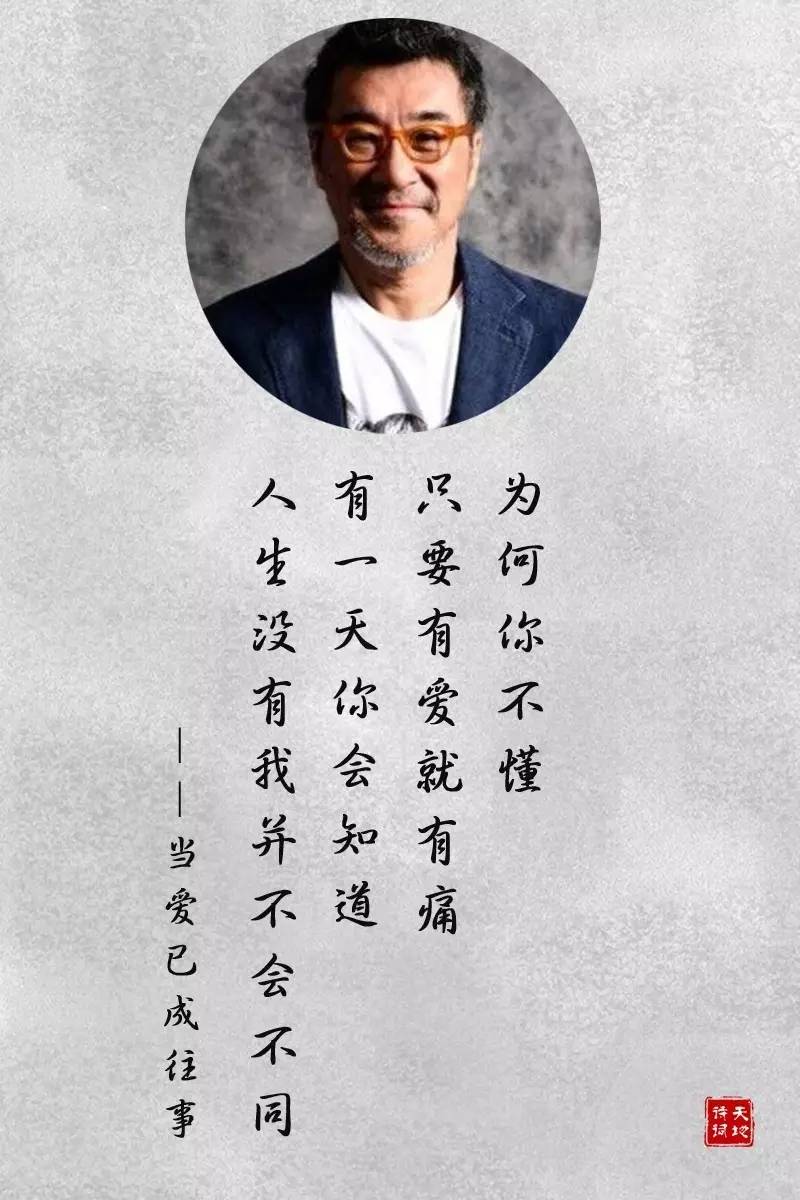 为何你不懂
只要有爱就有痛
有一天你会知道
人生没有我并不会不同
——当爱已成往事
天地
诗词